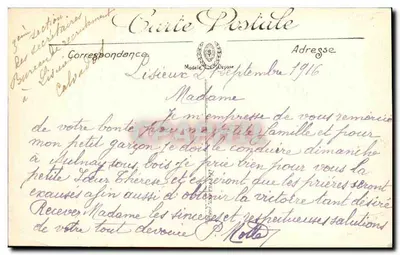 Carte Postale
Correspondance
Adresse
3ème section
des secrétaires
Bureau de recrutement
à Lisieux
Calvados
Lisieux 2 Septembre 1916
Madame
Je m'empresse de vous remercier
de votre bonté pour ma petite famille et pour
mon petit garçon je dois le conduire dimanche
à Aulnay sous bois je prie bien pour vous la
petite Sœur Thérèse et espérant que tes prières seront
exausés afin aussi d'obtenir la victoire tant désiré
Recevez Madame les sincères et respectueuses salutations
de votre tout devoué P.